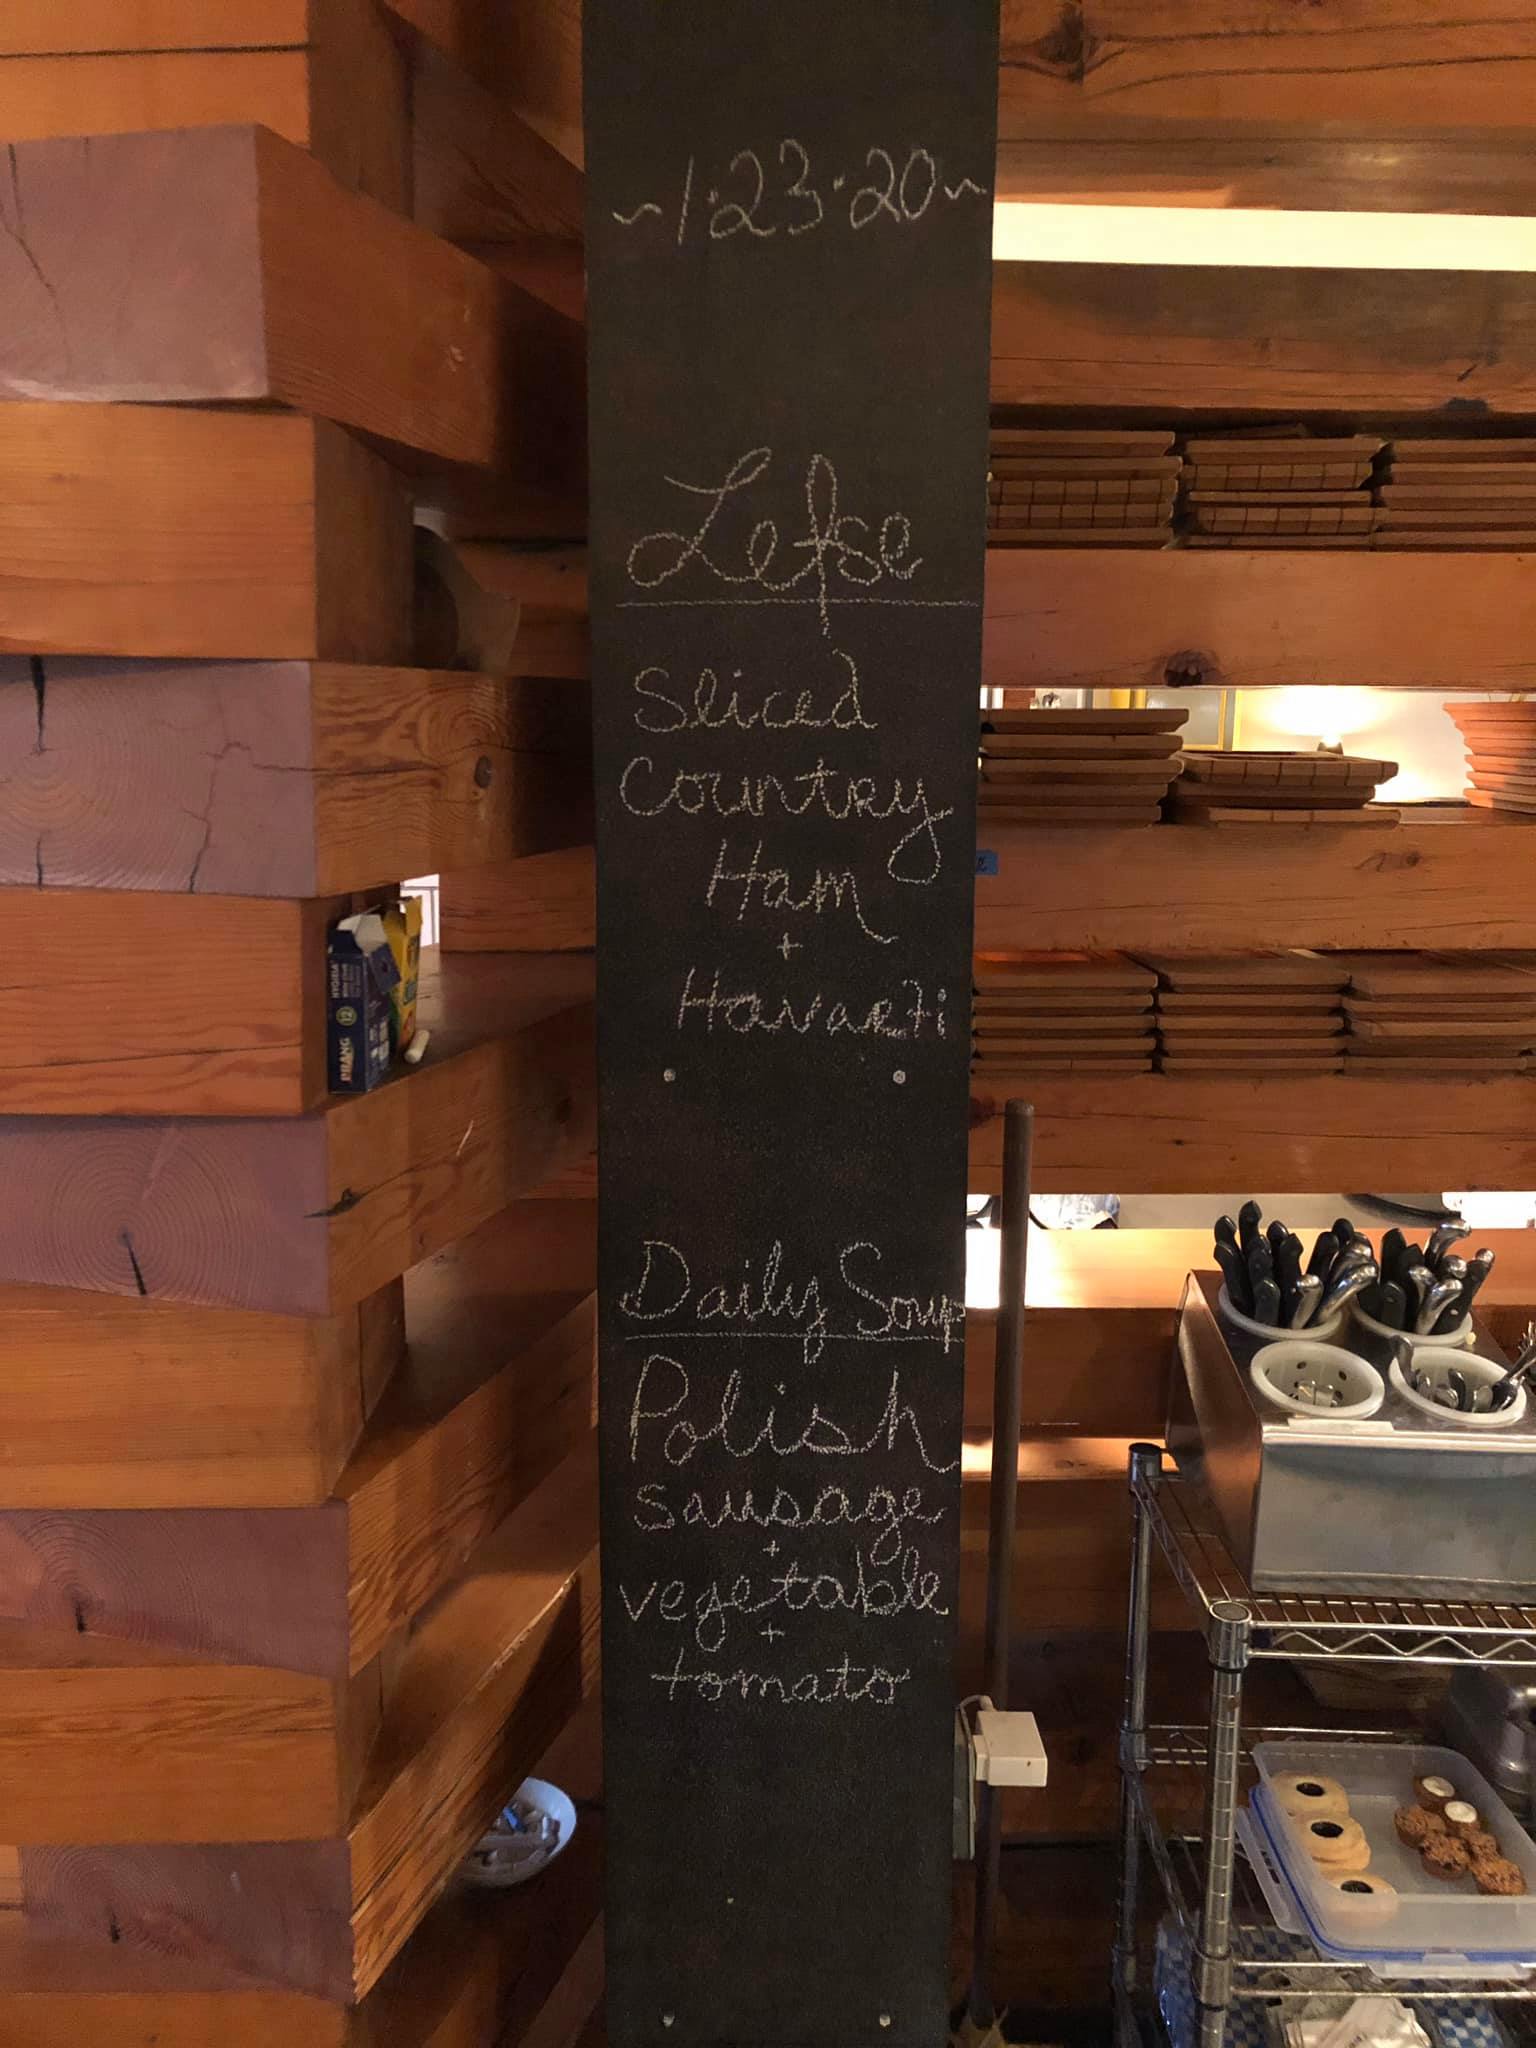 ~1·23·20~
Lefse
Sliced
Country
Ham
+
Havarti
Daily Soup
Polish
sausage
+
vegetable
+
tomato
HYGIEIA
12
PRANG